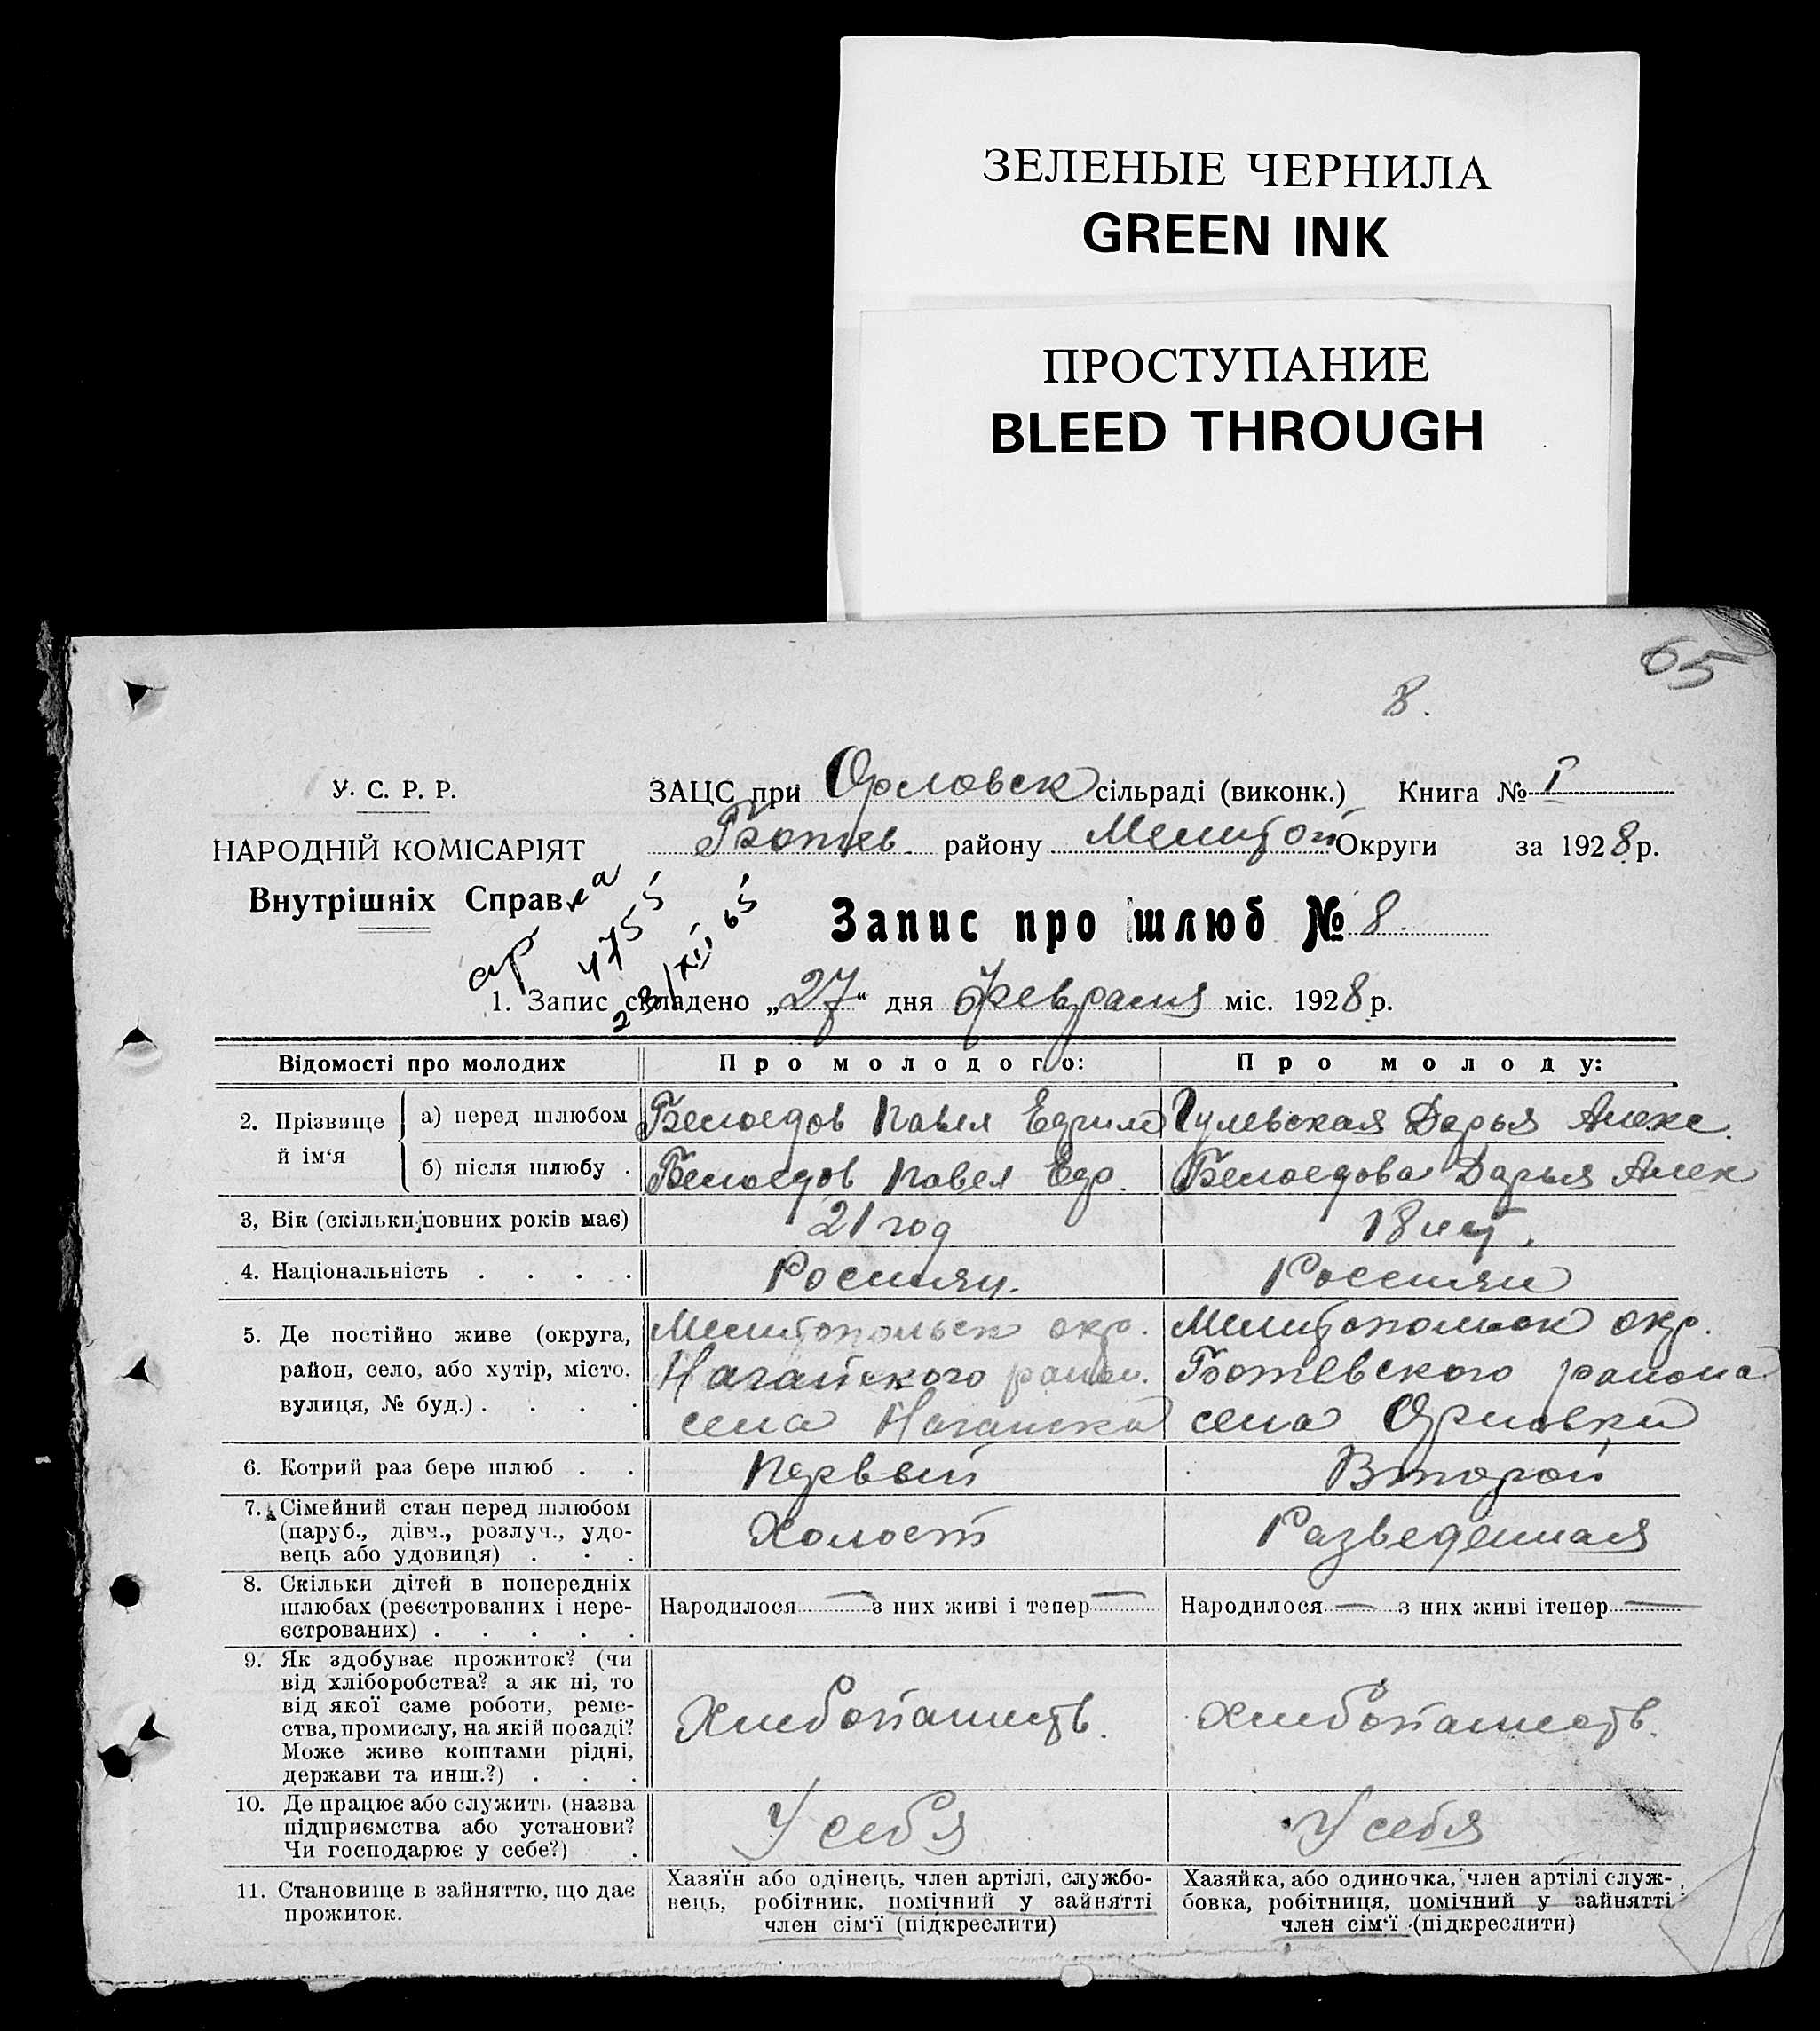 ЗЕЛЕНЫЕ ЧЕРНИЛА
GREEN INK
ПРОСТУПАНИЕ
BLEED THROUGH
65
8.
У. С. Р. Р.
ЗАЦС при Орловск сільраді (виконк.) Книга № I
НАРОДНІЙ КОМІСАРІЯТ
Ботев. району Мелитоп Округи за 1928 р.
Внутрішніх Справ
4755
Запис про шлюб № 8.
23/XII 65
1. Запис складено „27“ дня Февраля міс. 1928 р.
Відомості про молодих Про молодого: Про молоду:
2. Прізвище й ім‘я
а) перед шлюбом Белоедов Павел Гулевская Дарья Алекс.
б) після шлюбу . Белоедов Павел Белоедова Дарья Алек
3, Вік (скільки повних років має) 21 год 18 лет.
4. Національність . . . . Россиян. Россиян
5. Де постійно живе (округа, район, село, або хутір, місто. вулиця, № буд.) . . . .
Мелитопольск окр.
Нагайского район.
села Нагайска
Мелитопольск окр.
Ботевского района
села Орловки
6. Котрий раз бере шлюб . . Первый Второй
7. Сімейний стан перед шлюбом
(паруб., дівч., розлуч., удо-
вець або удовиця) . . . Холост Разведенная
8. Скільки дітей в попередніх
шлюбах (реєстрованих і нере-
єстрованих) . . . . .
Народилося — з них живі і тепер —
Народилося — з них живі ітепер —
9. Як здобуває прожиток? (чи
від хліборобства? а як ні, то
від якої саме роботи, реме-
ства, промислу, на якій посаді?
Може живе коштами рідні,
держави та инш.?) . . .
Хлебопашеств.
Хлебопашеств.
10. Де працює або служить (назва
підприємства або установи?
Чи господарює у себе?) .
У себя
У себя
11. Становище в зайняттю, що дає
прожиток.
Хазяїн або одінець, член артілі, службо-
вець, робітник, помічний у зайнятті
член сім‘ї (підкреслити)
Хазяйка, або одиночка, член артілі служ-
бовка, робітниця, помічний у зайнятті
член сім‘ї (підкреслити)